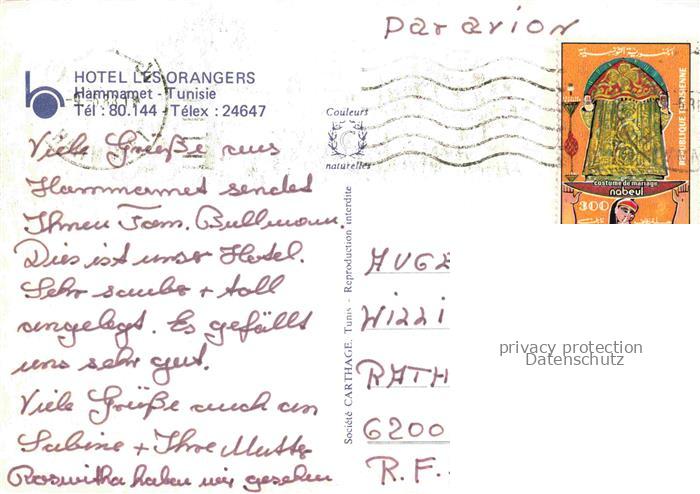 par avion
HOTEL LES ORANGERS
Hammamet - Tunisie
Tél : 80.144 - Télex : 24647
Couleurs
naturelles
REPUBLIQUE TUNISIENNE
الجمهورية التونسية
costume de mariage
nabeul
300
Viele Grüße aus
Hammamet sendet
Ihnen Fam. Bullmann.
Dies ist unser Hotel.
Sehr sauber + toll
angelegt. Es gefällt
uns sehr gut.
Viele Grüße auch an
Sabine + Ihre Mutter
Roswitha haben wir gesehen
Société CARTHAGE, Tunis - Reproduction interdite
6200
R.F.
privacy protection
Datenschutz